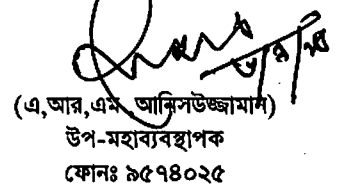 (এ,আর,এম আনিসউজ্জামান)
উপ-মহাব্যবস্থাপক
ফোনঃ ৯৫৭৪০২৫